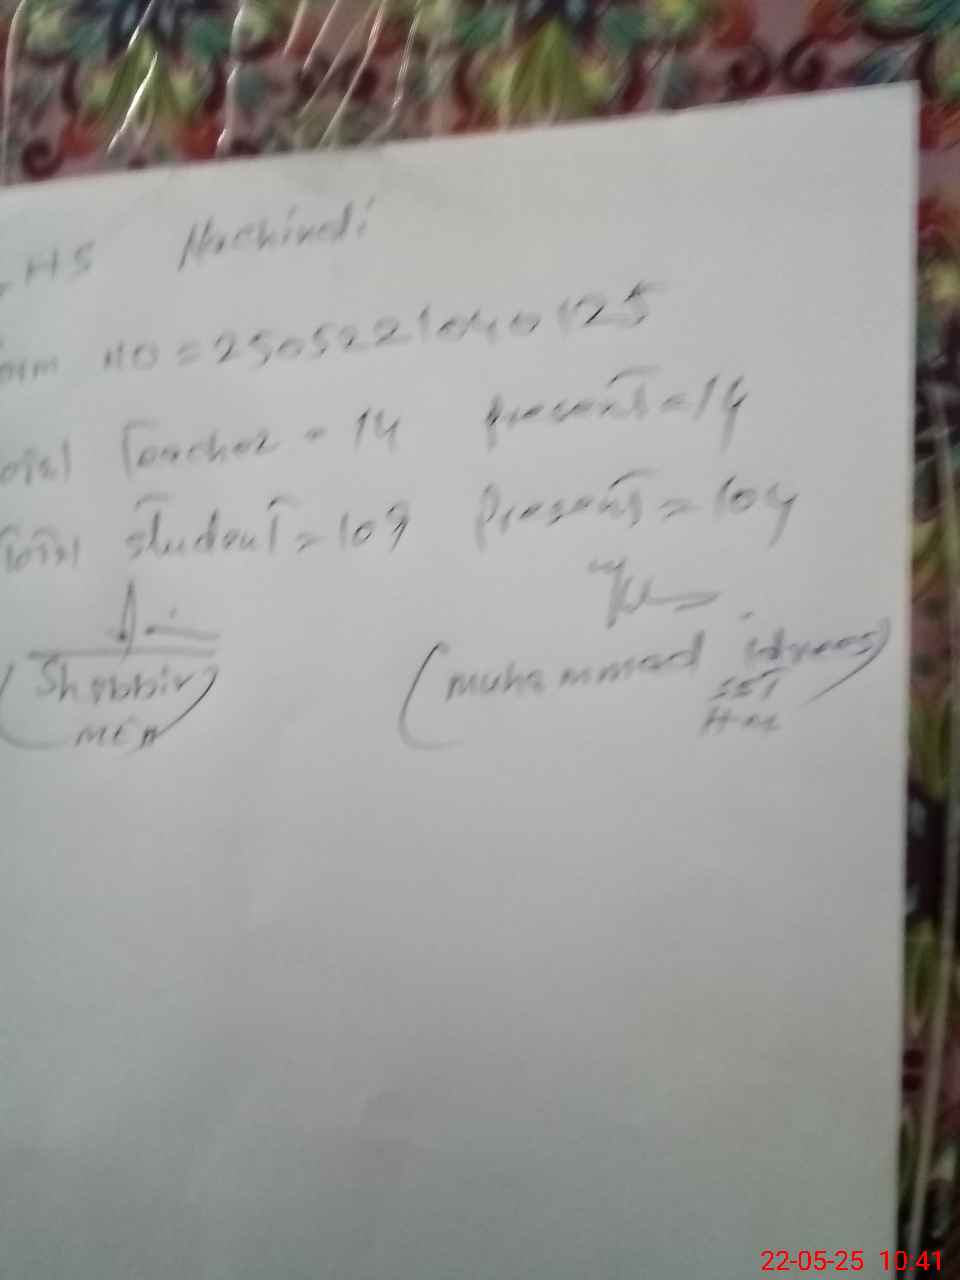 HS Nachindi
orm NO = 2505221040125
otal Teacher = 14 present = 14
Total student = 109 Present = 104
(Shabbir)
MEA
(Muhammad Idrees)
SST
22-05-25 10:41